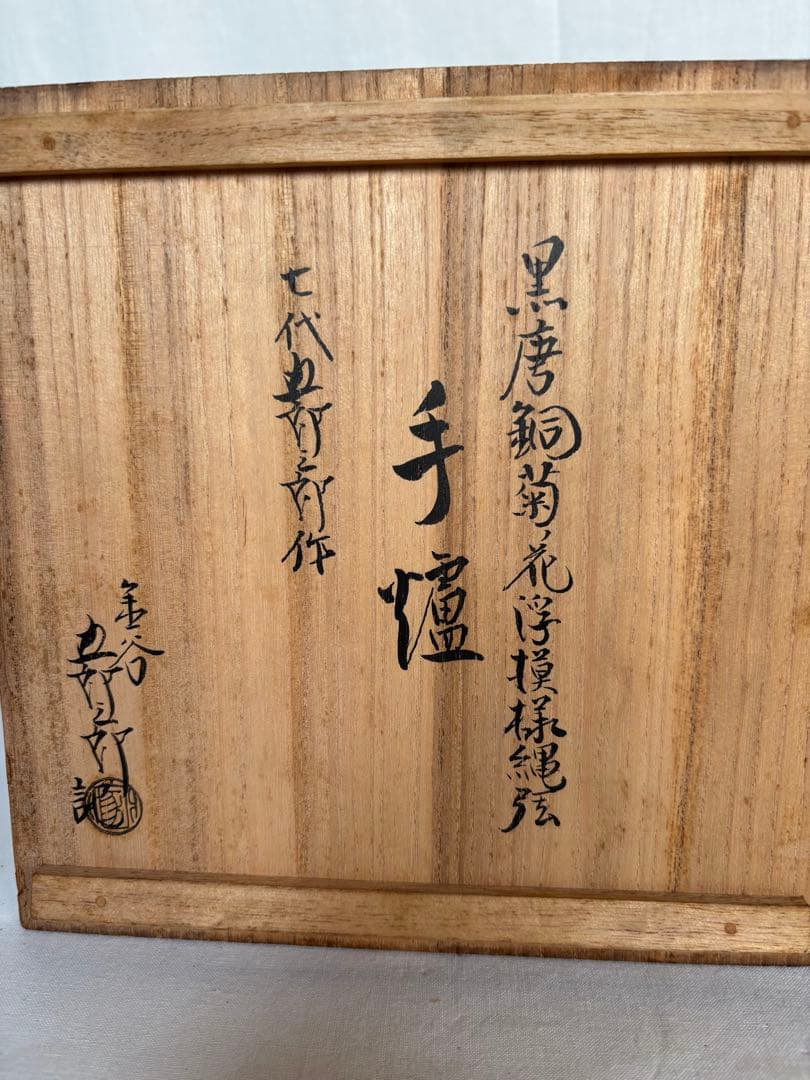 黒唐銅菊ノ花浮模様縄弦
手爐
七代五郎三郎作
金谷
五郎三郎
誌